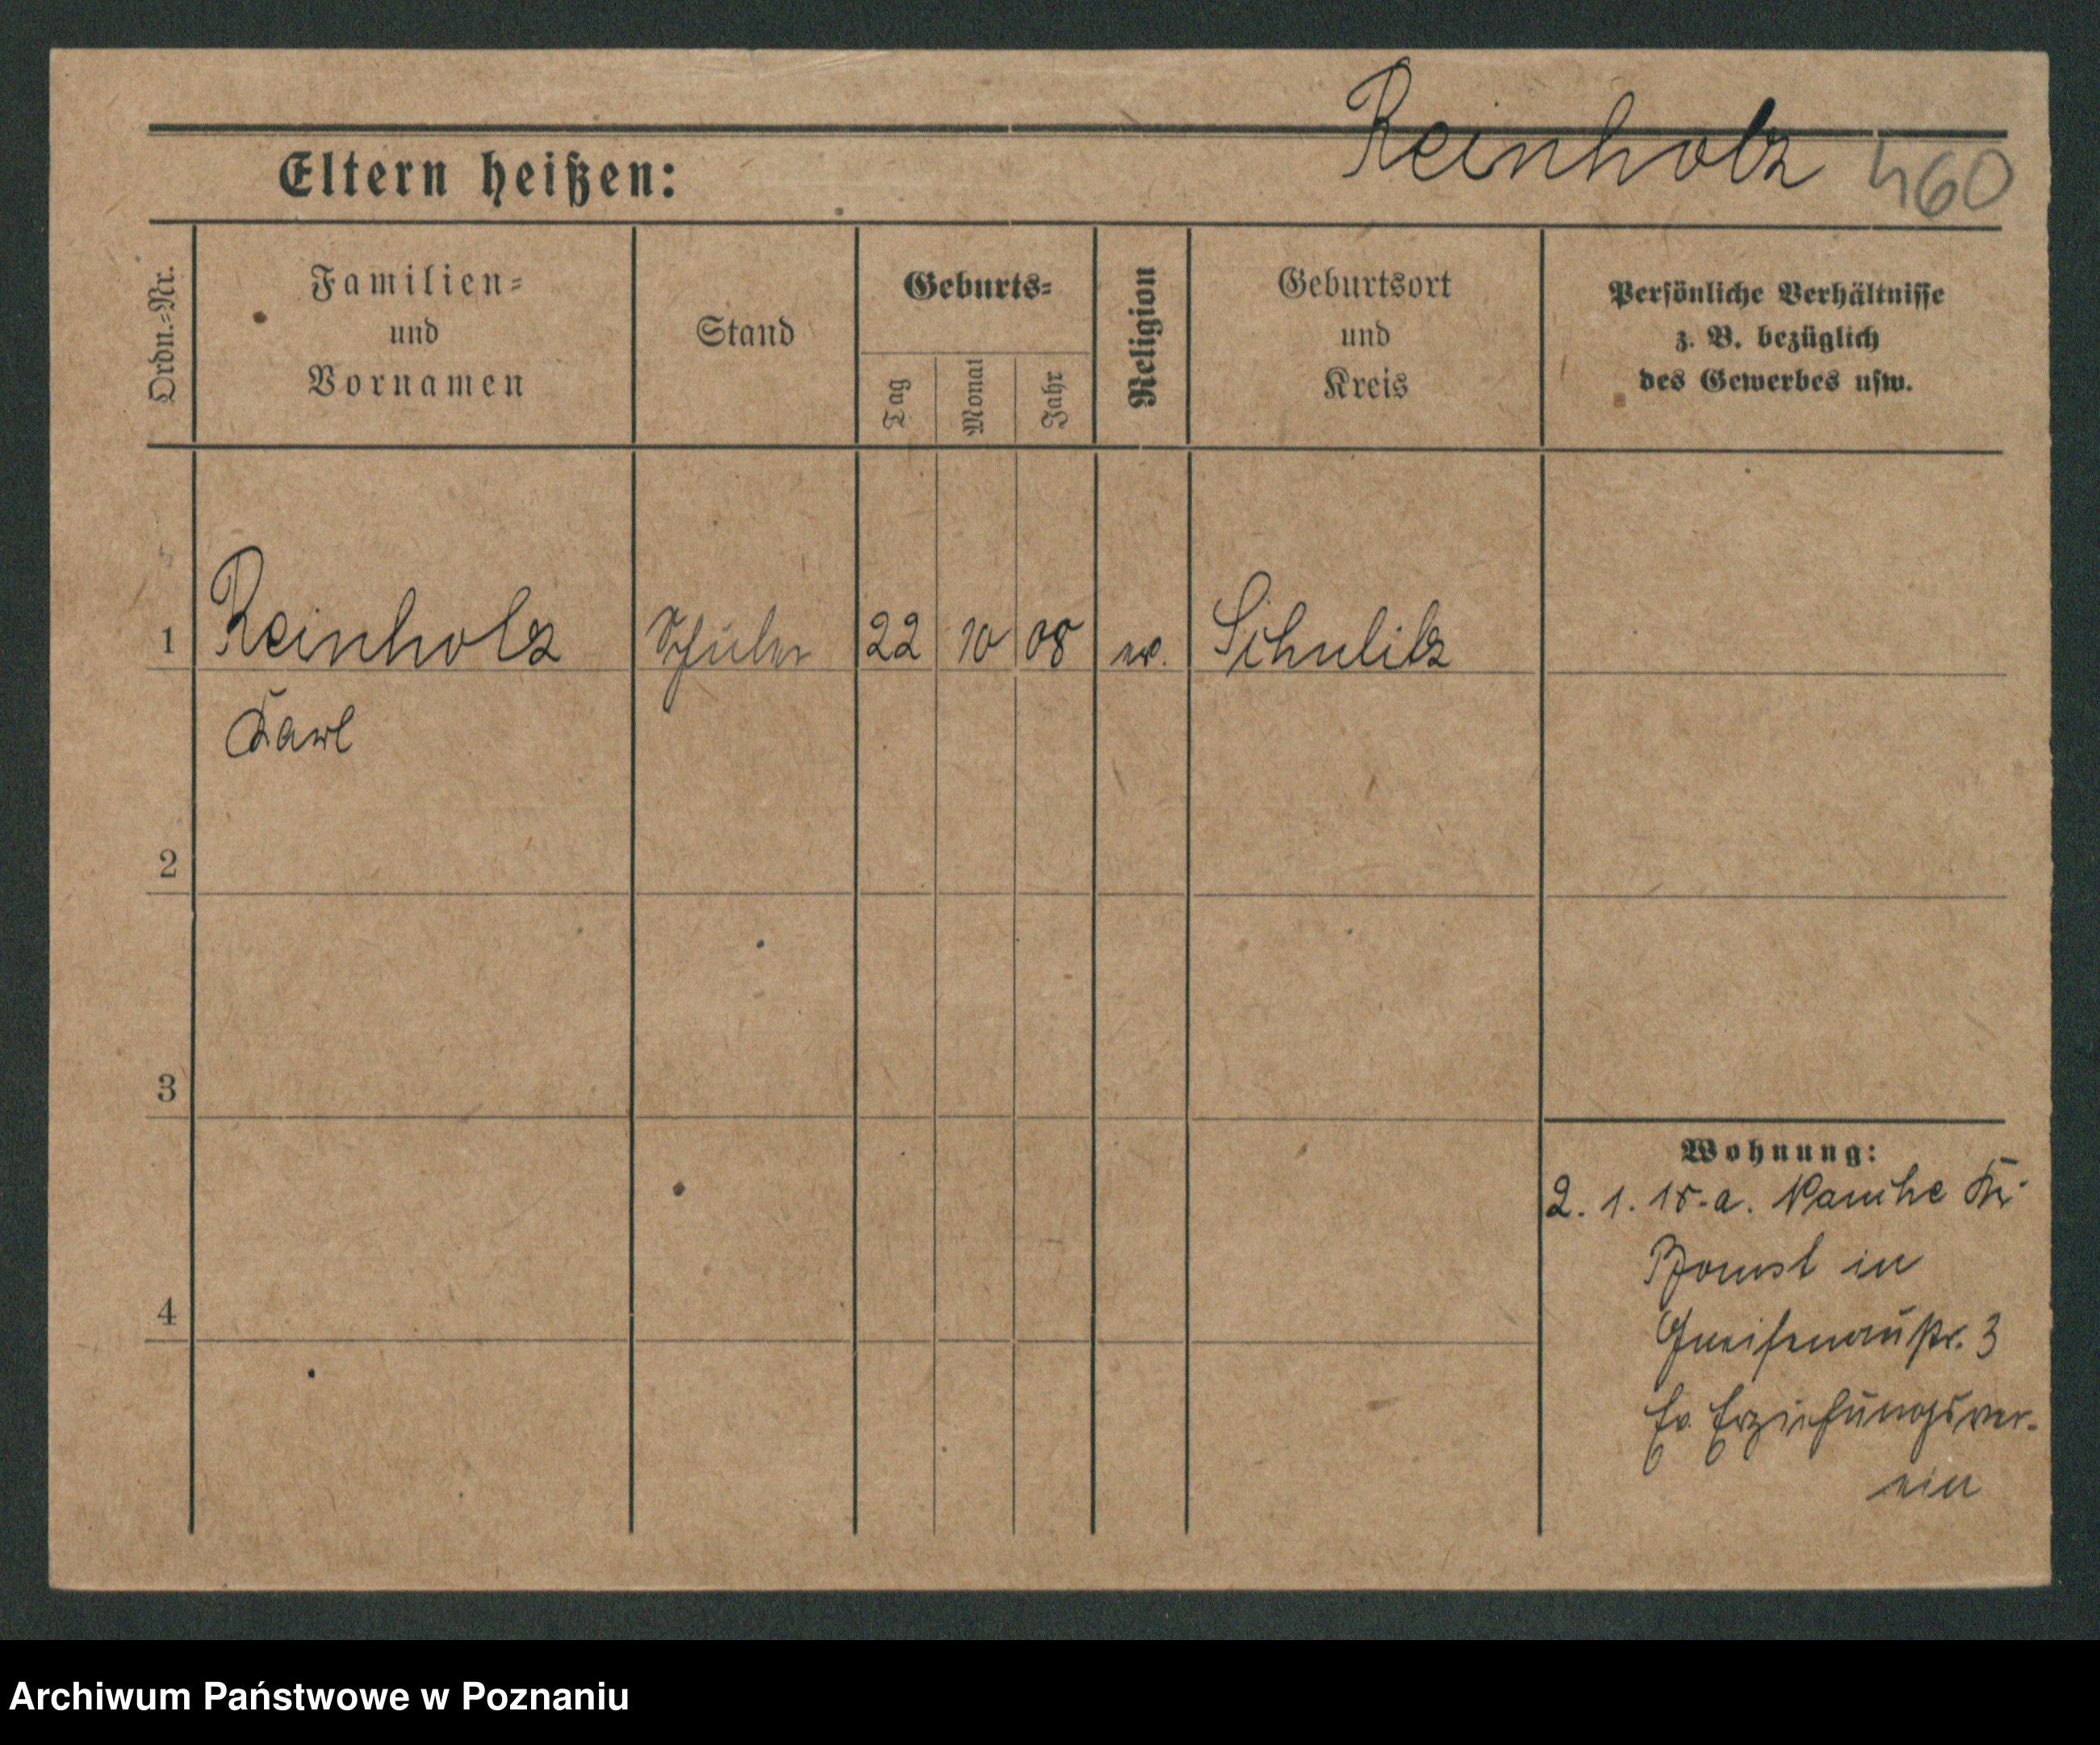 Reinholz 460
Eltern heißen:
Ordn.=Nr.
Familien=
und
Vornamen
Stand
Geburts=
Tag
Monat
Jahr
Religion
Geburtsort
und
Kreis
Persönliche Verhältnisse
z. B. bezüglich
des Gewerbes usw.
1 Reinholz Schüler 22 10 08 ev. Schulitz
Karl
2
3
4
Wohnung:
2. 1. 18. a. Kr.
Bomst in
Gneisenaustr. 3
Ev. Erziehungsver-
ein
Archiwum Państwowe w Poznaniu